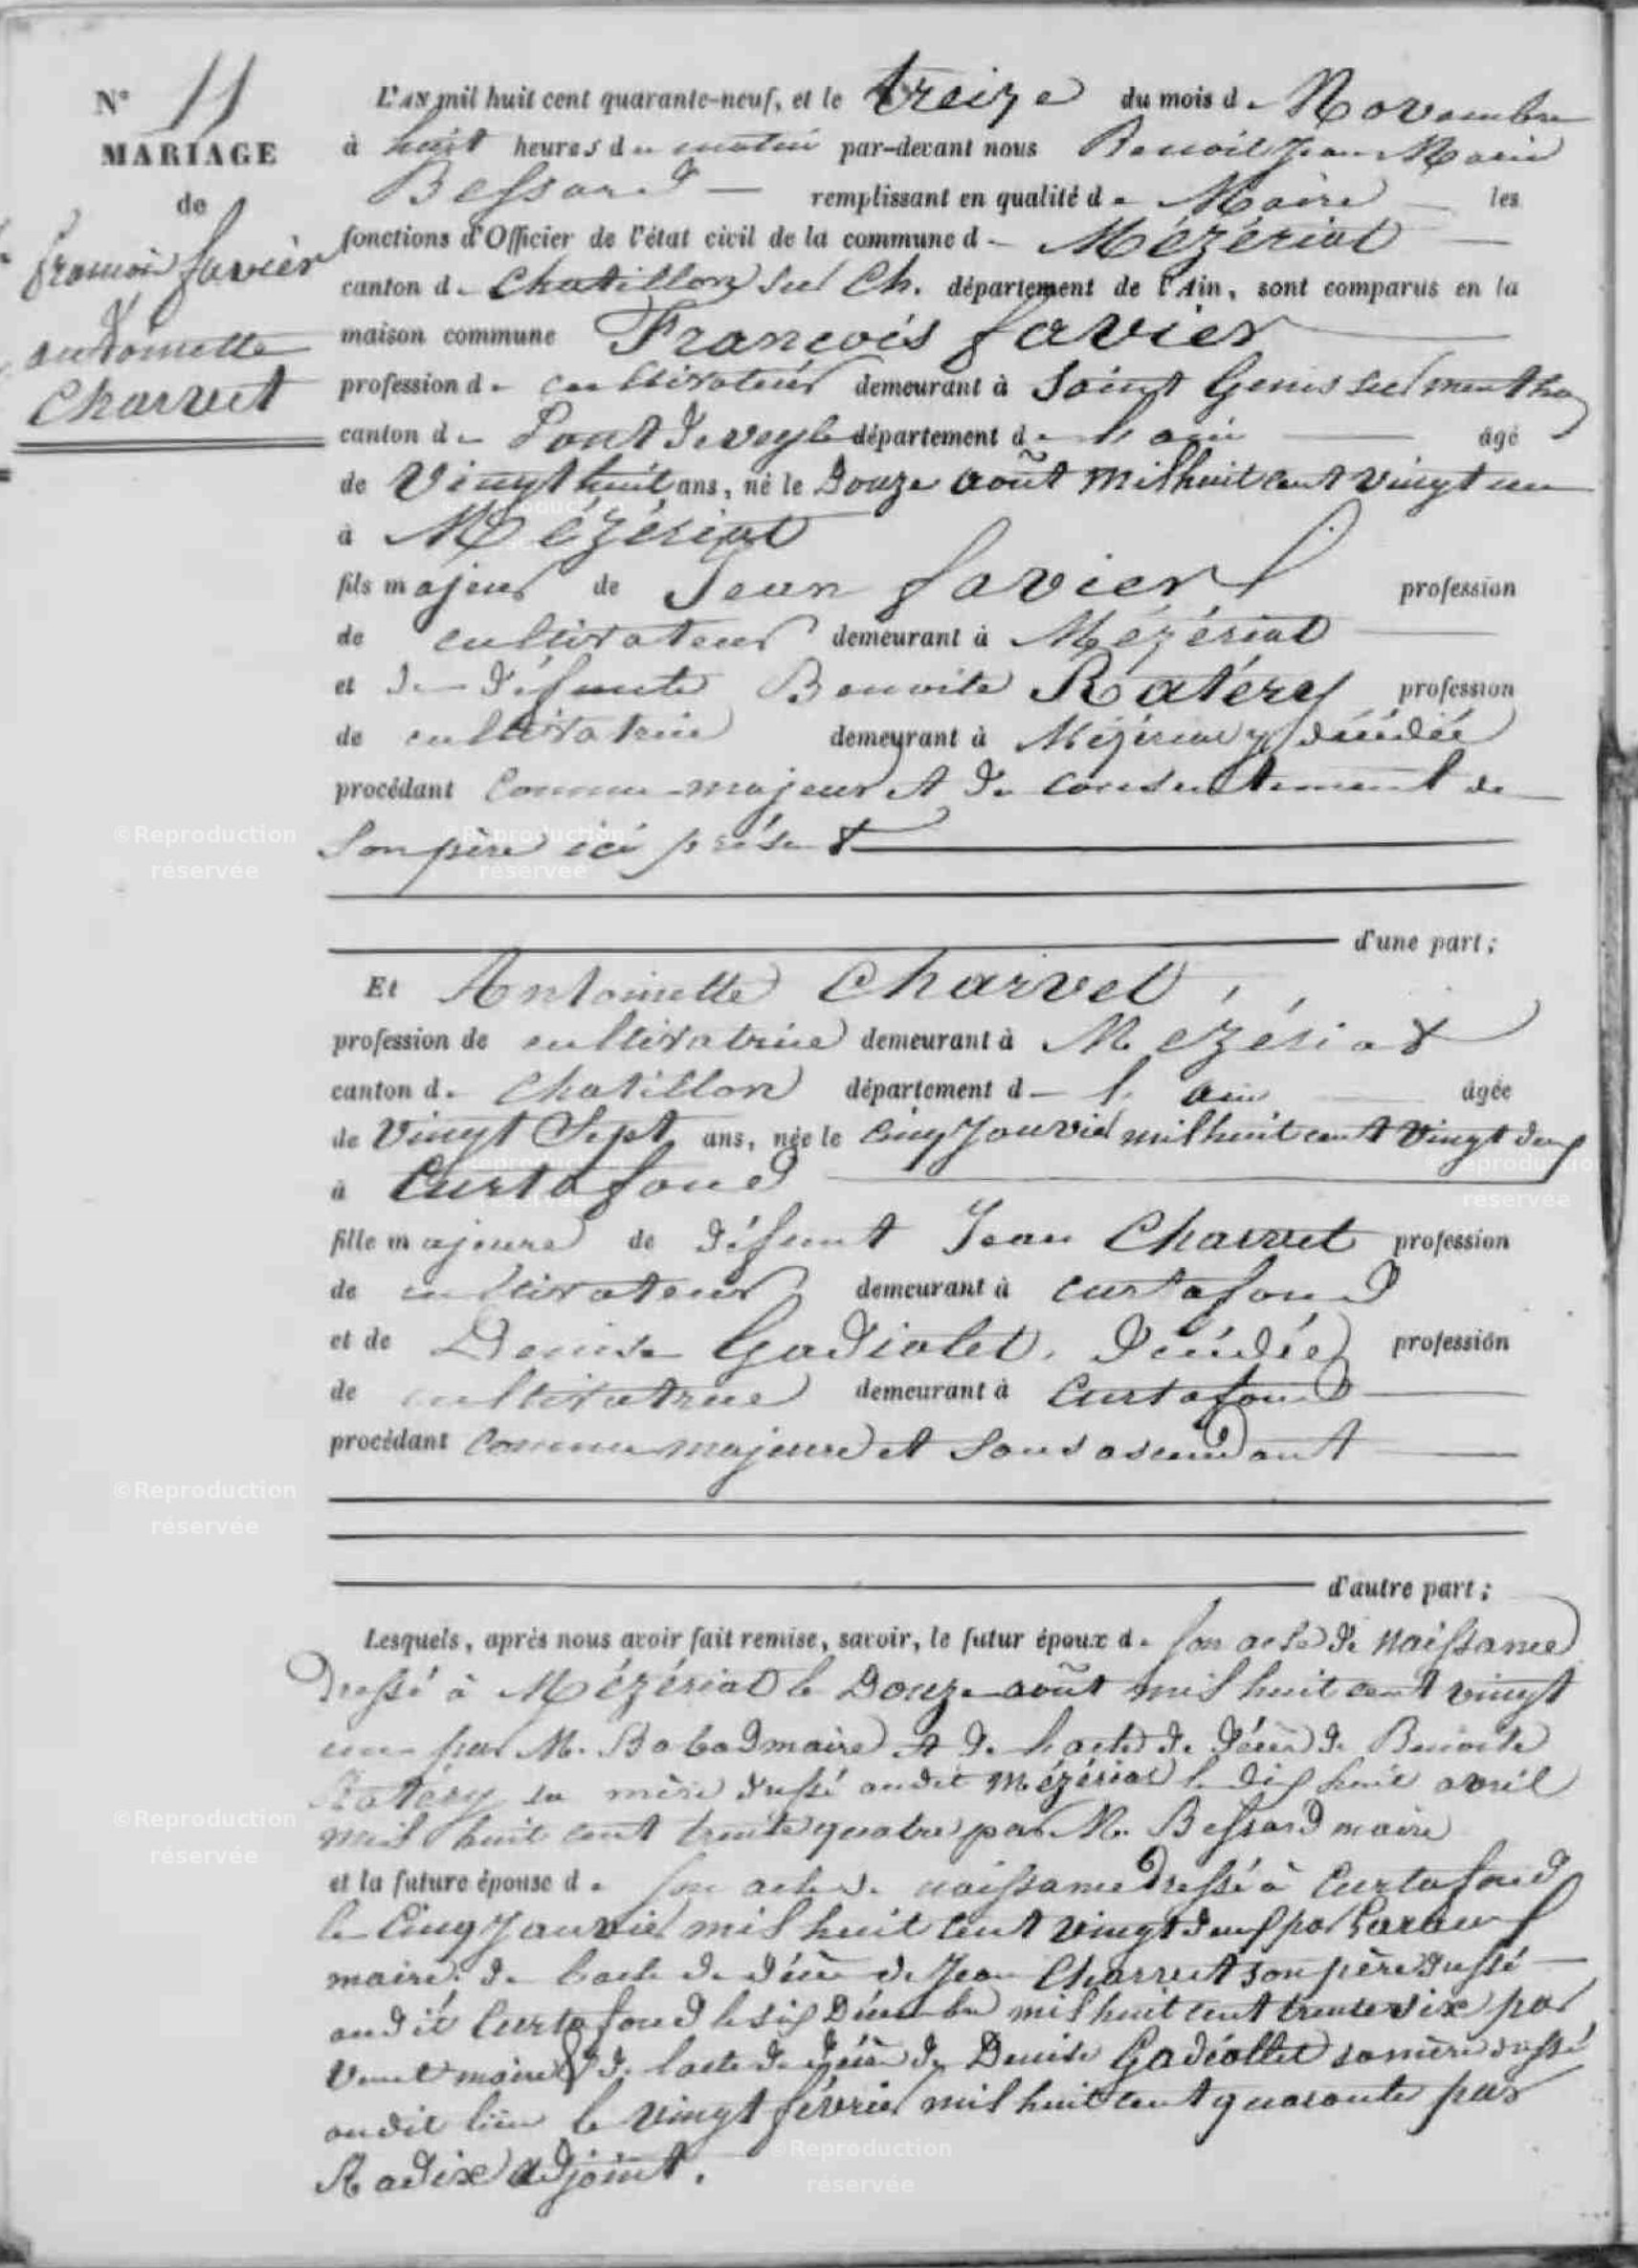 N° 11
MARIAGE
de
françois favier
&
antoinette
Charvet
L'AN mil huit cent quarante-neuf, et le treize du mois de Novembre
à huit heures du matin par-devant nous Benoit Jean Marie
Bessard remplissant en qualité de Maire les
fonctions d'Officier de l'état civil de la commune de Mézériat
canton de Chatillon sur Ch. département de l'Ain, sont comparus en la
maison commune François favier
profession de cultivateur demeurant à Saint Genis sur menthon
canton de Pont de veyle département de l'ain âgé
de Vingt huit ans, né le Douze août mil huit cent vingt un
à Mézériat
fils majeur de Jean favier profession
de cultivateur demeurant à Mézériat
et de défunte Benoite Ratéry profession
de cultivatrice demeurant à Mézériat y décédée
procédant comme majeur et du consentement de
son père ici présent
d'une part ;
Et Antoinette Charvet,
profession de cultivatrice demeurant à Mézériat
canton de Chatillon département de l'ain âgée
de Vingt Sept ans, née le cinq Janvier mil huit cent vingt deux
à Curtafond
fille majeure de défunt Jean Charvet profession
de cultivateur demeurant à Curtafond
et de Denise Gadiolet, décédée profession
de cultivatrice demeurant à Curtafond
procédant comme majeure et sans ascendant
d'autre part ;
Lesquels, après nous avoir fait remise, savoir, le futur époux de son acte de naissance
dressé à Mézériat le Douze août mil huit cent vingt
un par M. Babad maire et de l'acte de décès de Benoite
Ratéry sa mère dressé audit Mézériat le dix huit avril
mil huit cent trente quatre par M. Bessard maire
et la future épouse de son acte de naissance dressé à Curtafond
le Cinq Janvier mil huit cent vingt deux par
maire. de l'acte de décès de Jean Charvet son père dressé
audit Curtafond le six Décembre mil huit cent trente six par
maire & de l'acte de décès de Denise Gadiollet sa mère dressé
audit lieu le vingt février mil huit cent quarante par
Radix adjoint.
©Reproduction
réservée